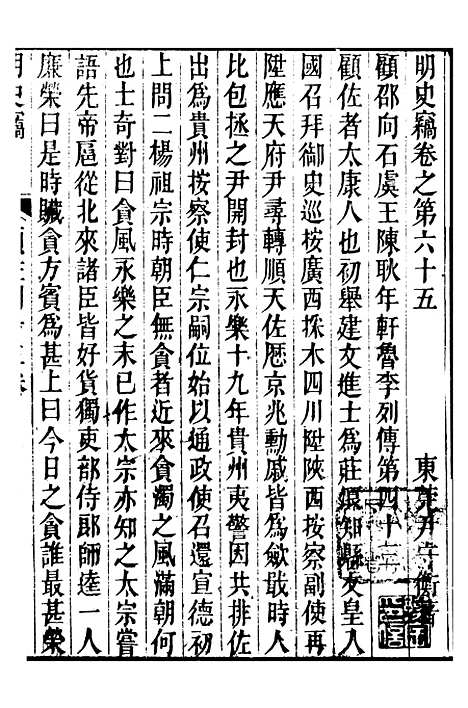 明史竊卷之第六十五
東莞尹守衡著
顧邵向石虞王陳耿年軒魯李列傳第四十三
顧佐者太康人也初舉建文進士為莊浪知縣文皇入
國召拜御史巡按廣西採木四川陞陝西按察副使再
陞應天府尹尋轉順天佐歷京兆勳戚皆為歛戢時人
比包拯之尹開封也永樂十九年貴州夷警因共排佐
出為貴州按察使仁宗嗣位始以通政使召還宣德初
上問二楊祖宗時朝臣無貪者近來貪濁之風滿朝何
也士奇對曰貪風永樂之末已作太宗亦知之太宗嘗
語先帝扈從北來諸臣皆好貨獨吏部侍郎師逵一人
廉榮曰是時贓貪方賓為甚上曰今日之貪誰最甚榮
明史竊